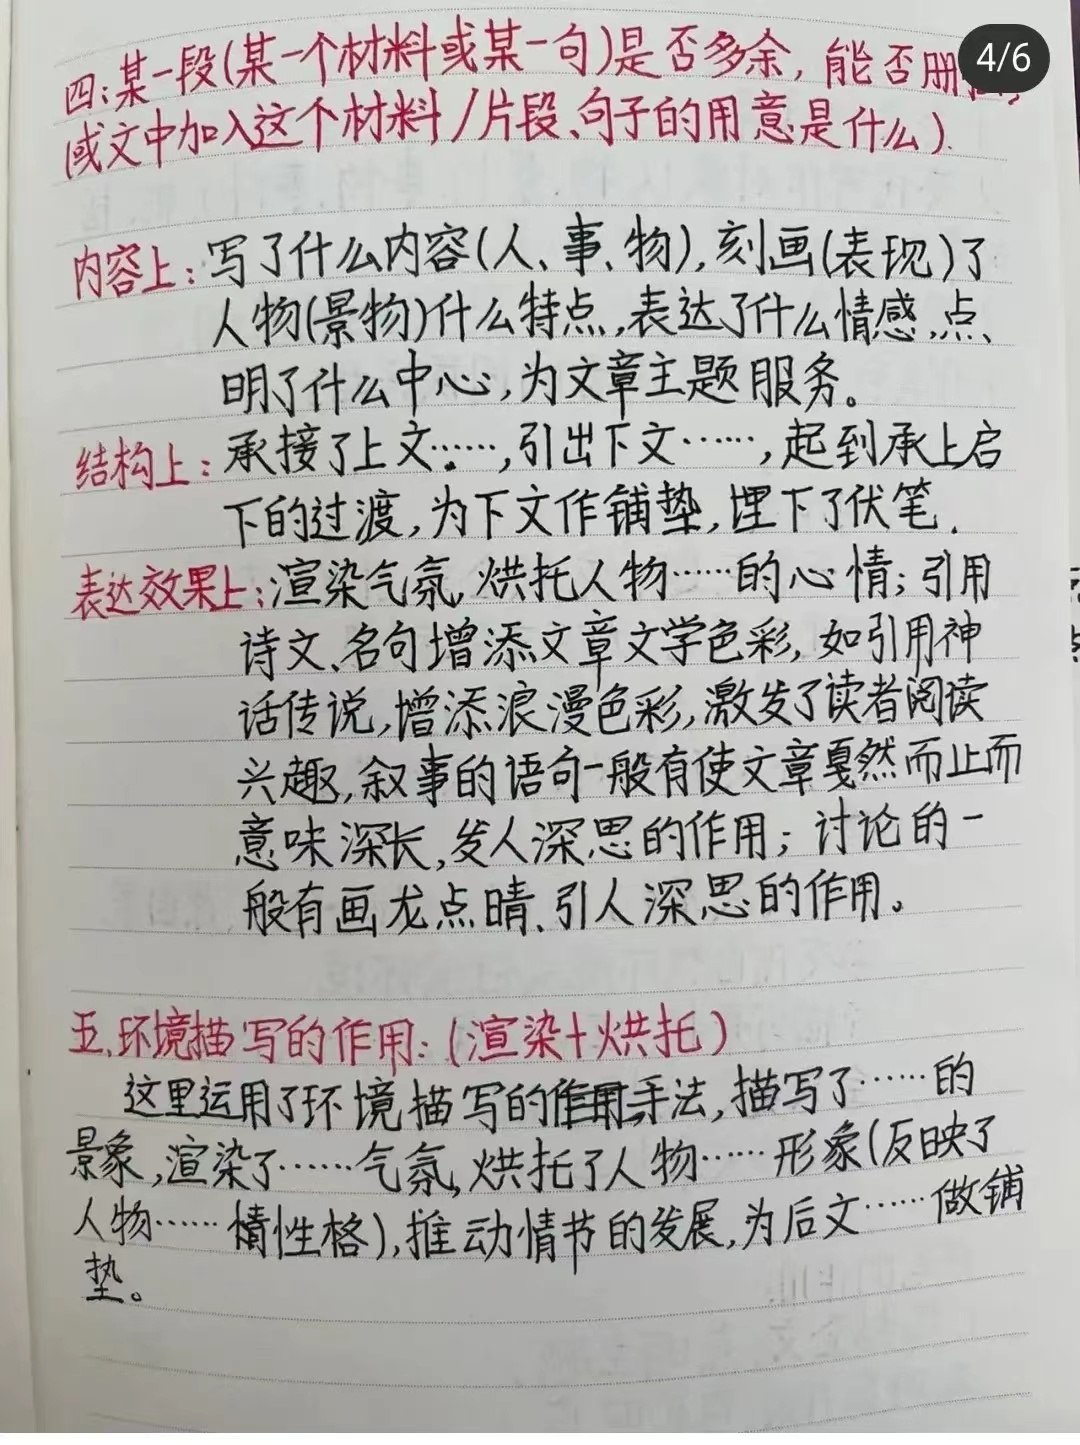 4/6
四:某一段(某一个材料或某一句)是否多余,能否删
(或文中加入这个材料/片段、句子的用意是什么).
内容上:写了什么内容(人、事、物),刻画(表现)了
人物(景物)什么特点,表达了什么情感,点、
明了什么中心,为文章主题服务。
结构上:承接了上文……,引出下文……,起到承上启
下的过渡,为下文作铺垫,埋下了伏笔.
表达效果上:渲染气氛,烘托人物……的心情;引用
诗文、名句增添文章文学色彩,如引用神
话传说,增添浪漫色彩,激发了读者阅读
兴趣,叙事的语句一般有使文章戛然而止而
意味深长,发人深思的作用;讨论的一
般有画龙点晴、引人深思的作用。
五、环境描写的作用:(渲染+烘托)
这里运用了环境描写的作用,手法,描写了……的
景象,渲染了……气氛,烘托了人物……形象(反映了
人物……情性格),推动情节的发展,为后文……做铺
垫。